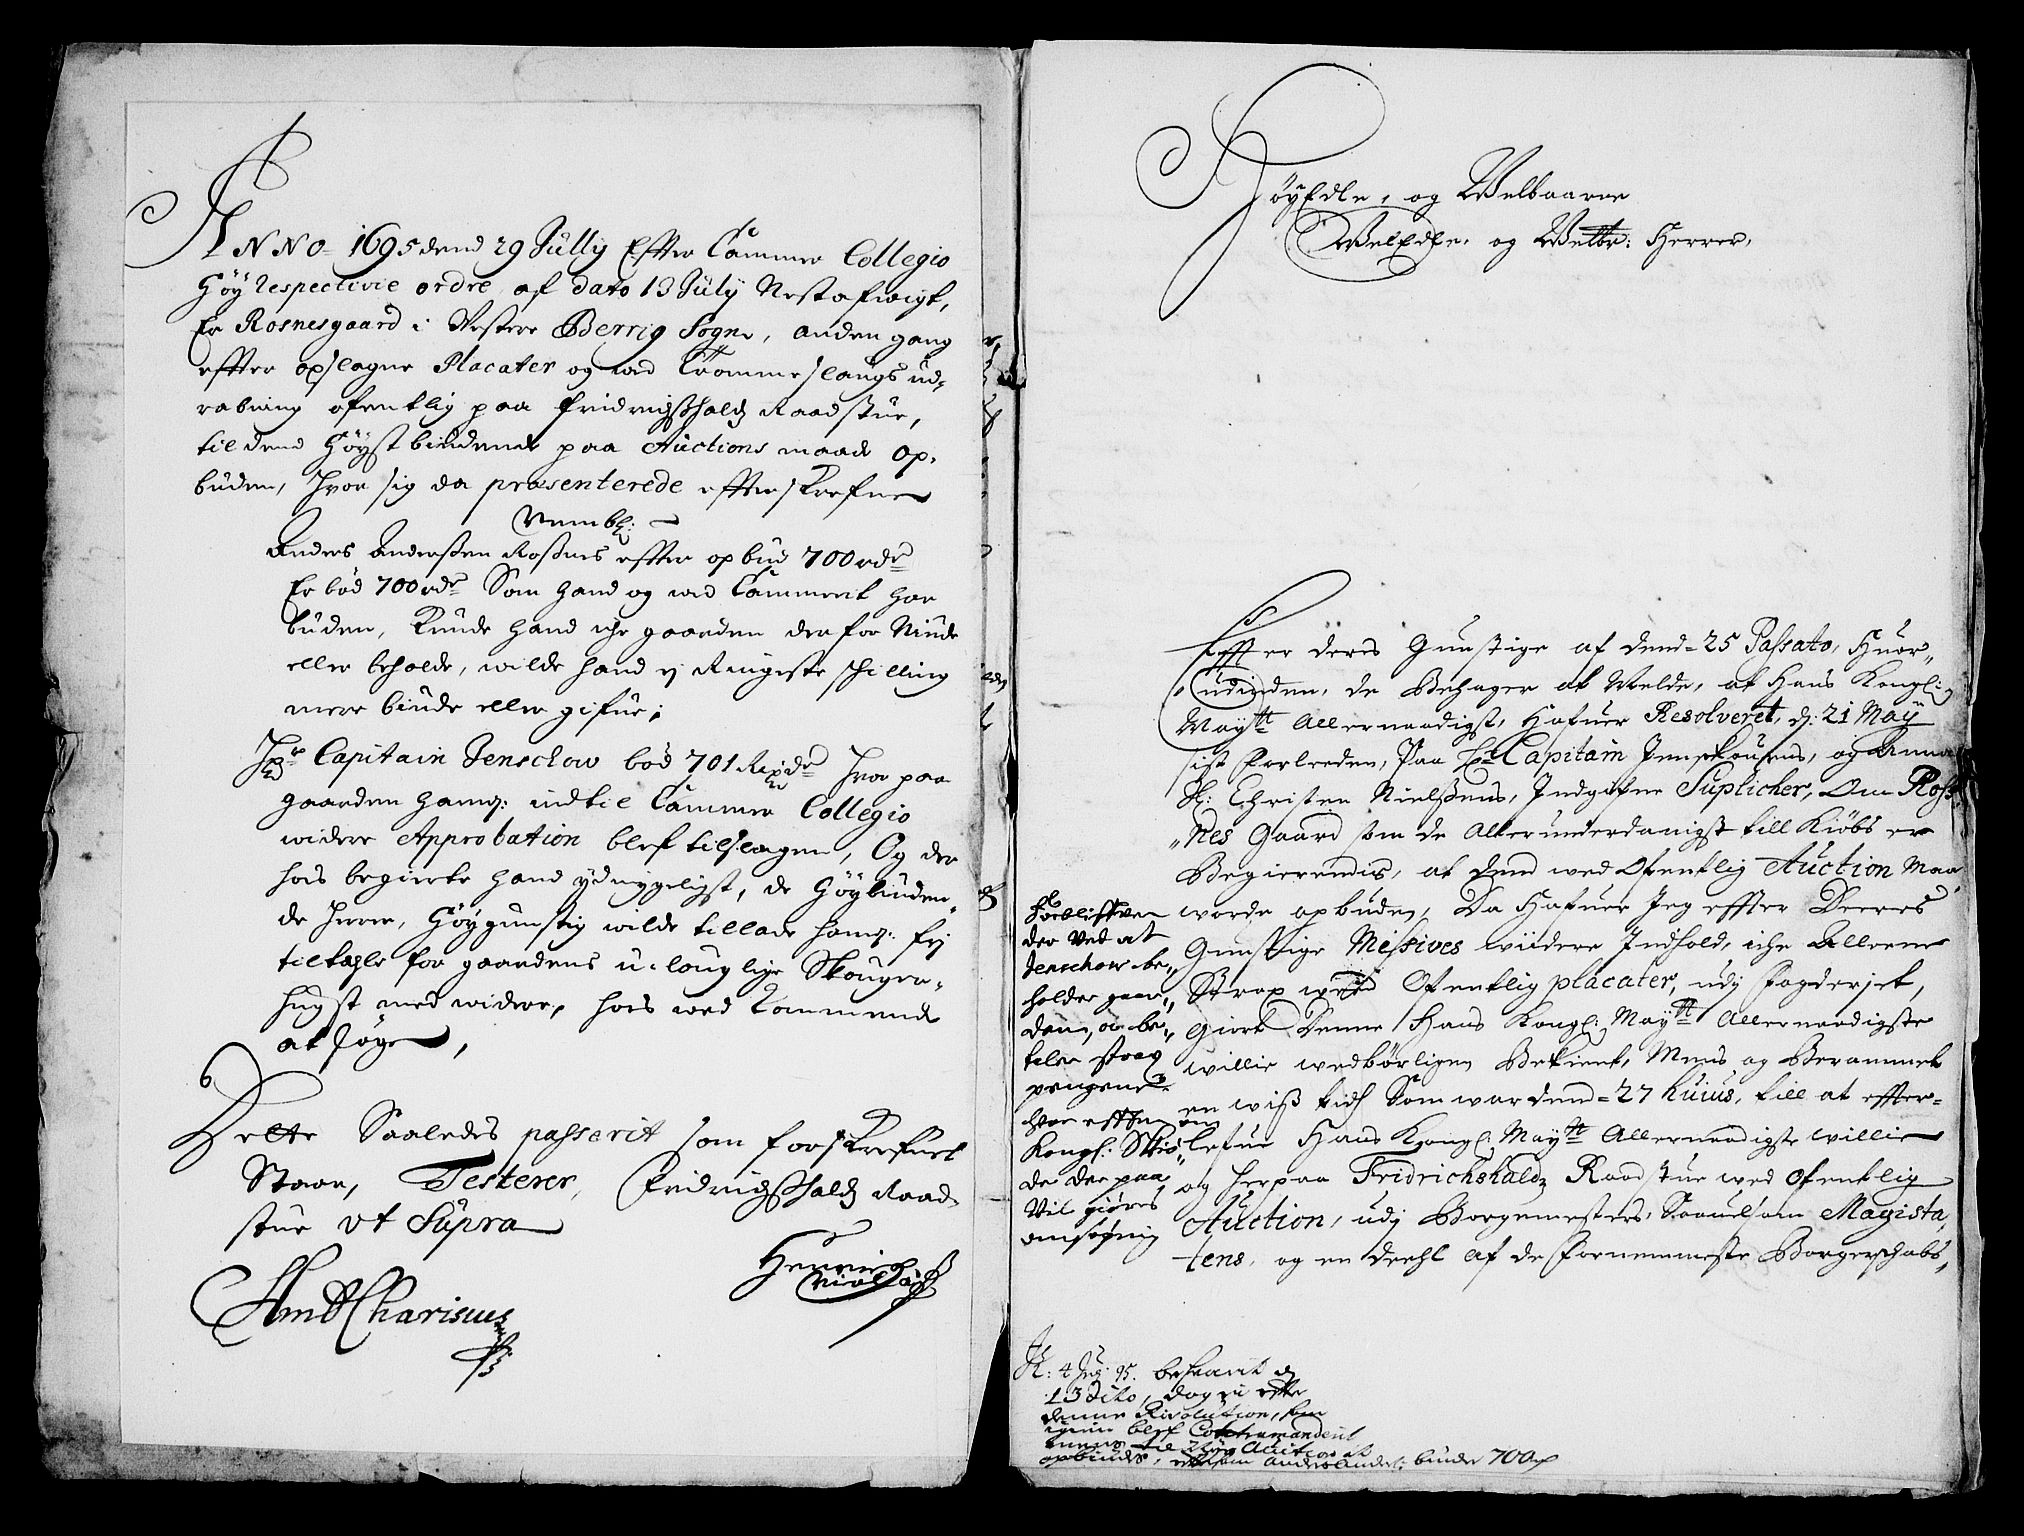 ANNO 1695 dend 29 Jully Effter Cammer Collegio
Höy Respective ordre af dato 13 July Nestafwigt,
Er Rosnesgaard i Vestere Berrig Sogne, anden gang
effter opslagne Placater og ved Trommeslaugs ud-
raabning ofentlig paa Fridrichshalds Raadstue,
til dend Höystbiudende paa Auctions maade op-
buden, hvor sig da præsenterede effterskrefne
Nembl:
Anders Anderssen Rossnes effter opbud 700 rdr
Er bód 700 rdr Som hand og ved Cammerit har
buden, kunde hand iche gaarden derfor Niude
eller beholde, wilde hand ej Ringeste schilling
mere biude eller gifue;
Hr Capitain Jenschow bód 701 Rixdr hvor paa
gaarden hamb: indtil Cammer Collegio
widere Approbation blef tilslagen, Og der
hos begierte hand ydmygeligst, de Höybiuden-
de Herrer, Höygunstig wilde tillade hamb: frj
tiltahle for gaardens u-louglige Skouger-
hugst med widere, hos ved kommende
at söge,
Dette Saaledes passerit som forskrefuet
Staar, Testerer, Fridrichshalds Raad-
stue Ut Supra
Henrich
Nielsön
And Charisius
HöyEdle, og Welbaarne
WelEdle, og Welbr: Herrer,
Effter deres Gunstige af dend 25 Passato, Huor-
udinden, de Behager at Melde, at Hans Kongl:
Maytt Allernaadigst, Hafuer Resolveret, d: 21 Maij
sist forleeden, Paa Hr Capitain Jenskousens, og Anna
Sl: Christen Nielssens, Indgifne Suplicher, Om Ross-
Nes Gaard som de Allerunderdanigst till Kiöbs er
Begierendis, at dend wed Ofentlig Auction Maa
worde opbuden, Da Hafuer Jeg effter Deeres
Gunstige Missives wiidere Indhold, iche Alleene
Strax wed Ofentlig placater, udj Fogderjet,
Giort Denne Hans Kongl: Maytt Allernaadigste
willie wedbörligen Bekient, Mens og Berammet
en wiss tid Som war dend 27 huius, till at effter-
komme Hans Kongl: Maytt Allernaadigste willie
og herpaa Fridrichshaldz Raadstue wed Ofentlig
Auction, udj Borgemesters, Saauelsom Magista
tens, og en deehl af de fornemmeste Borgerschabs,
Forblifver
der Ved at
Jenschow be-
holder gaar-
den, og be-
taler strax
pengene
hvor effter
Kongl: Skiö-
de der paa
Vil giöres
ansögning
R: 4 Jul: 95. besvarit d
13 dito,
denne Resolution, som
igien blef Contramanderit
opbiudes, Anders Anders: biude 700